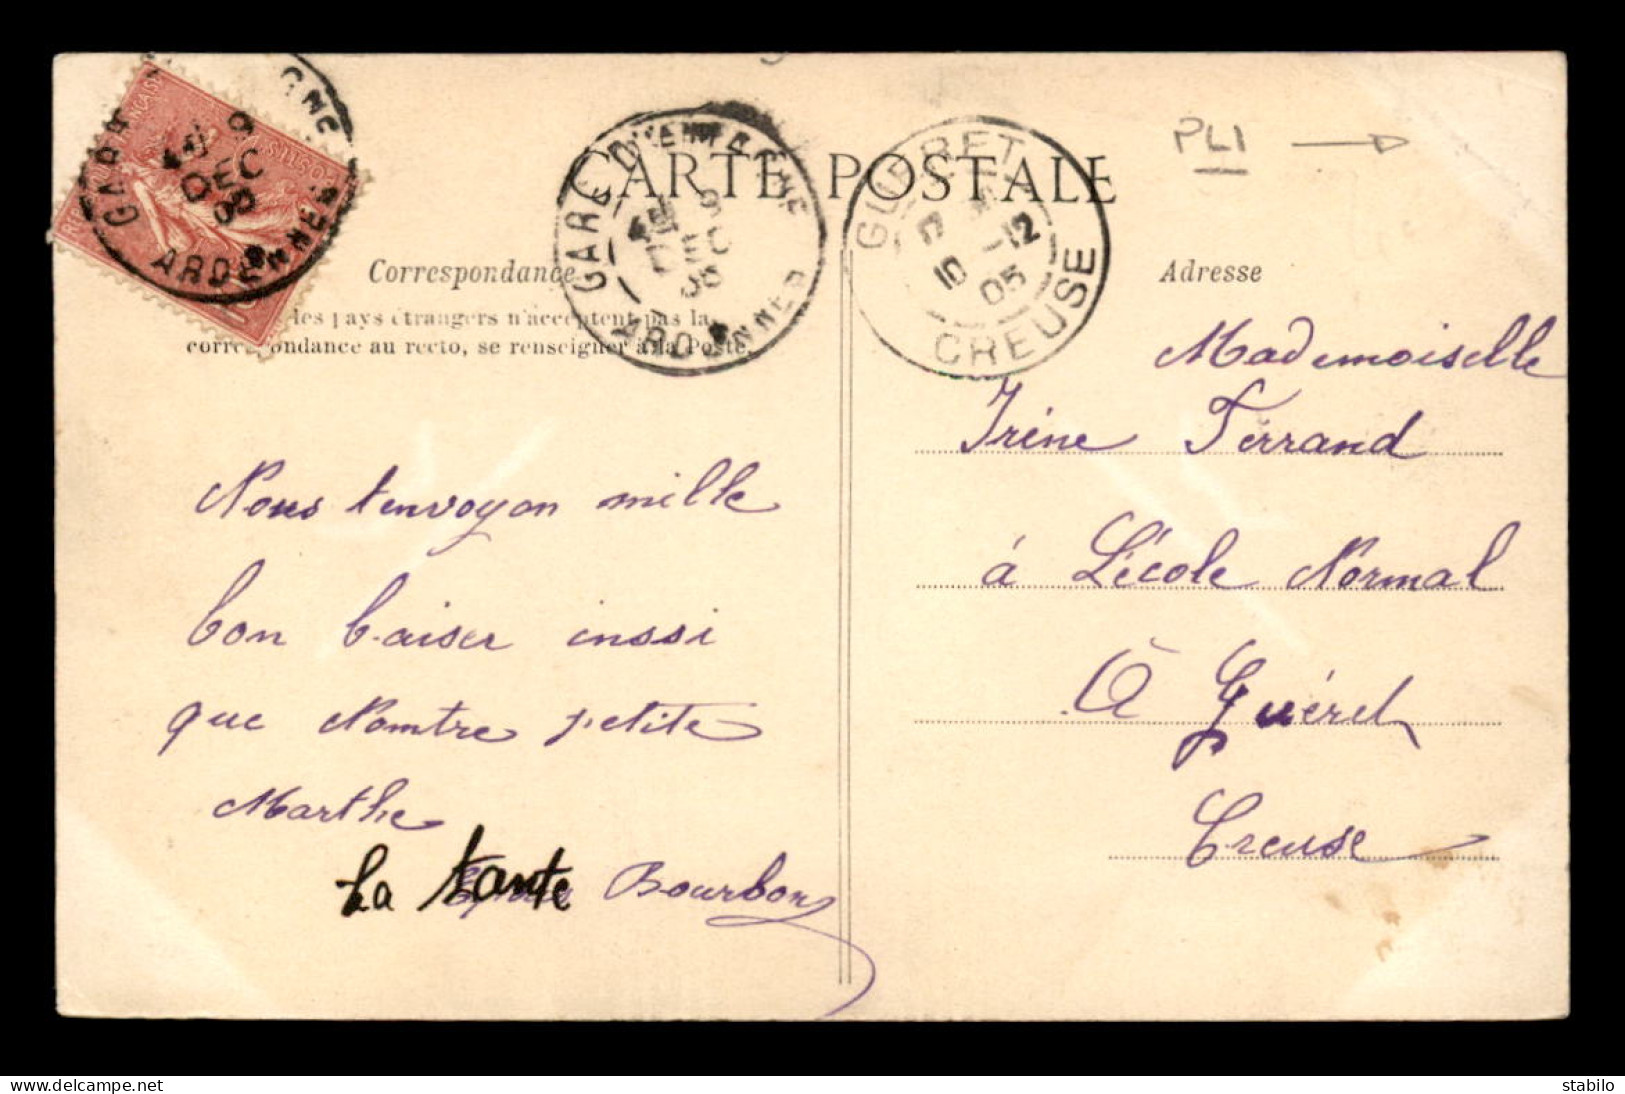 CARTE POSTALE
PLI
Correspondance
les pays étrangers n'acceptent pas la
correspondance au recto, se renseigner à la Poste.
Nous tenvoyon mille
bon baiser inssi
que Nomtre petite
Marthe
La tante Bourbon
GARE
9
DEC
ARDENNES
GARE D'
9
DEC
05
ARDENNES
GUERET
10 -12
05
CREUSE
Adresse
Mademoiselle
Irène Ferrand
á L'école Normal
À Guéret
Creuse
delcampe.net
stabilo